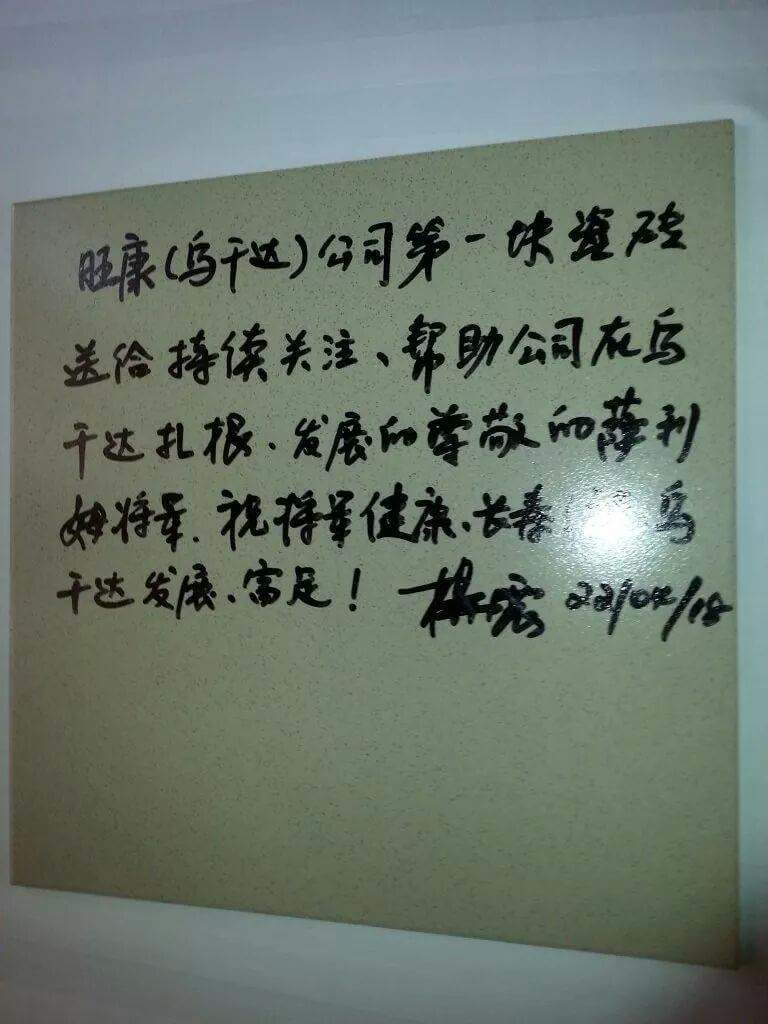 旺康(乌干达)公司第一块瓷砖
送给持续关注、帮助公司在乌
干达扎根、发展的尊敬的萨利
姆将军.祝将军健康、长寿 乌
干达发展、富足! 杨震 22/04/18